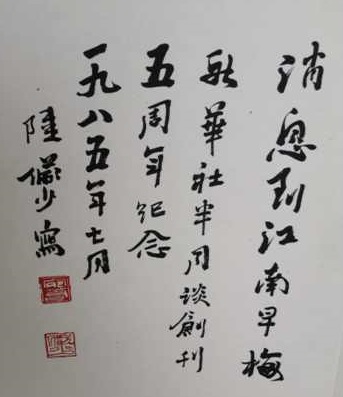 消息到江南早梅
新華社半月談創刊
五周年紀念
一九八五年七月
陸儼少寫